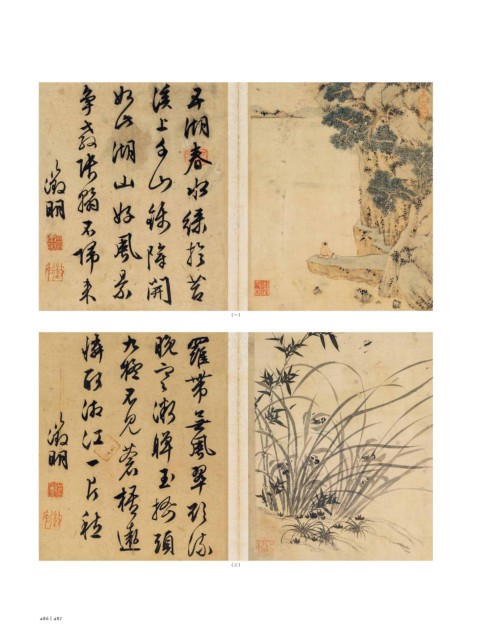 五湖春水綠於苔
溪上千山錦障開
如此湖山好風景
爭教張翰不歸來
徵明
(一)
羅帶無風翠流
晚寒嚲玉搔頭
九疑不見蒼梧遠
憐取湘江一片愁
徵明
486 | 487